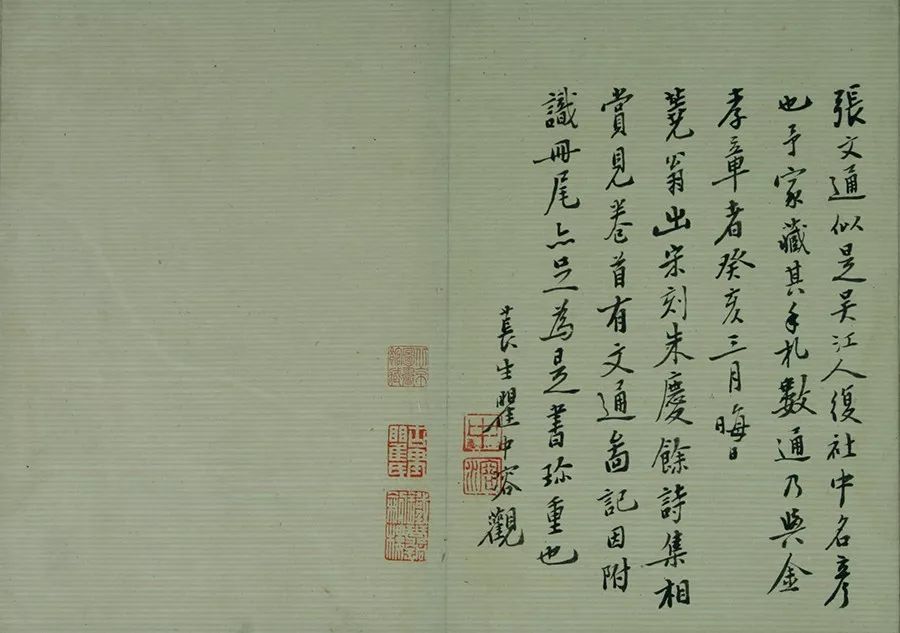 張文通似是吳江人復社中名彥
也予家藏其手札數通乃與金
孝章者癸亥三月晦日
蕘翁出宋刻朱慶餘詩集相
賞見卷首有文通啚記因附
識冊尾亦足為是書珍重也
萇生瞿中容觀